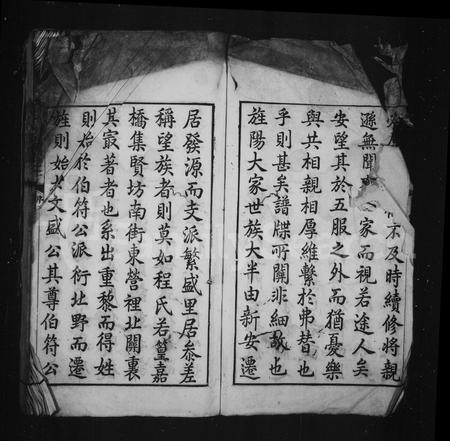 不及時續修將親
遜無聞 家而視若途人矣
安望其於五服之外而猶憂樂
與共相親相厚維繫於弗替也
乎則甚矣譜牒所關非細故也
旌陽大家世族大半由新安遷
居發源而支派繁盛里居參差
稱望族者則莫如程氏若篁嘉
橋集賢坊南街東營裡北關裏
其最著者也系出重黎而得姓
則始於伯符公派衍北野而遷
旌則始文盛公其尊伯符公